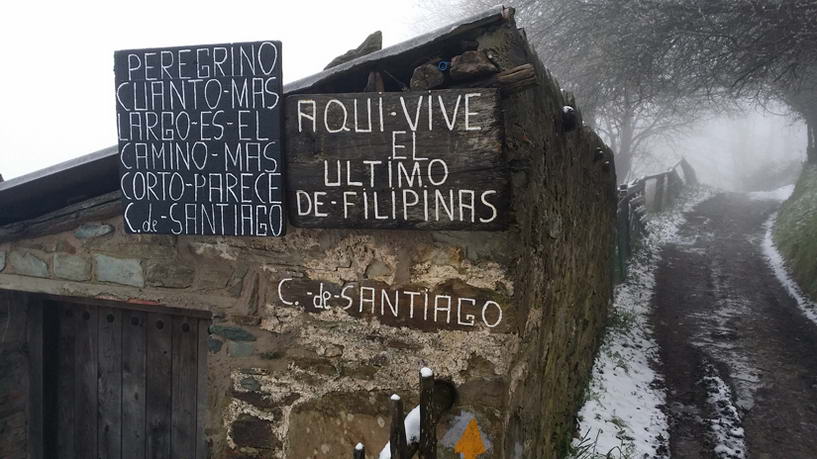 PEREGRINO
CUANTO-MAS
LARGO-ES-EL
CAMINO-MAS
CORTO-PARECE
C.de-SANTIAGO
AQUI-VIVE
EL
ULTIMO
DE-FILIPINAS
C.-de-SANTIAGO